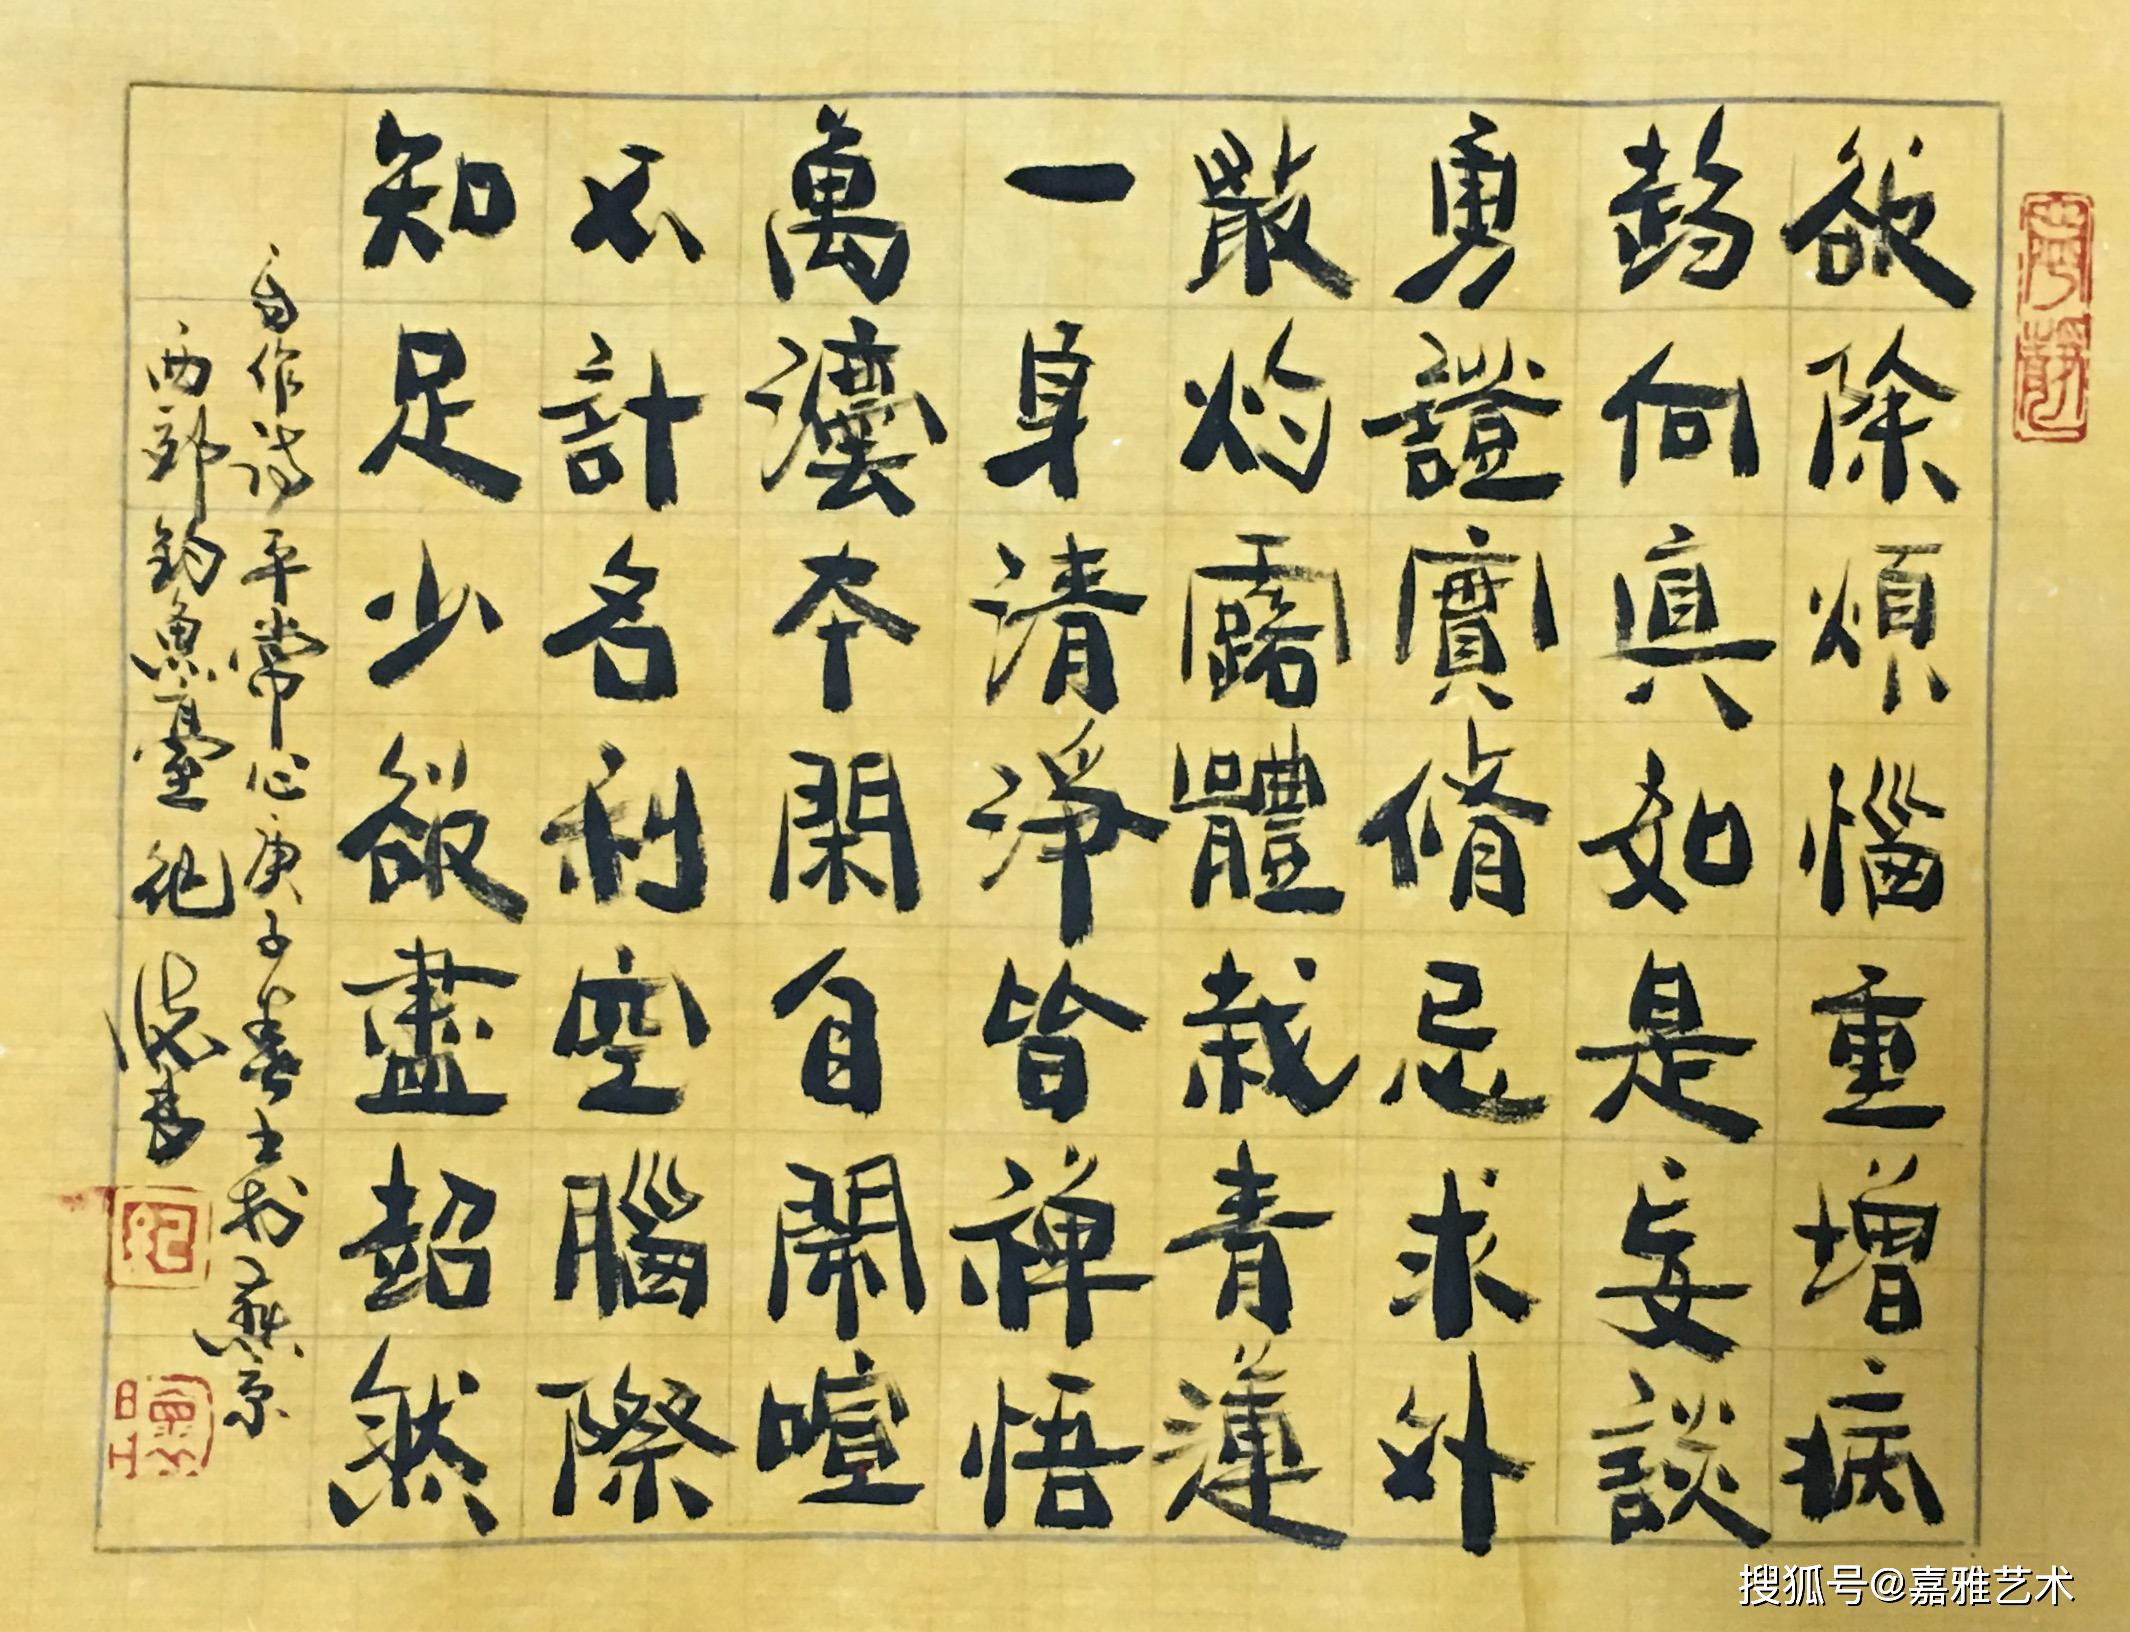 欲除煩惱重增病
趨向真如是妄談
勇證實脩忌求外
嚴灼露體栽青蓮
一身清淨皆禪悟
萬法本閑自鬧喧
不計名利空腦際
知足少欲盡超然
自作詩平常心庚子春上於燕京
西部釣魚臺
搜狐号@嘉雅艺术